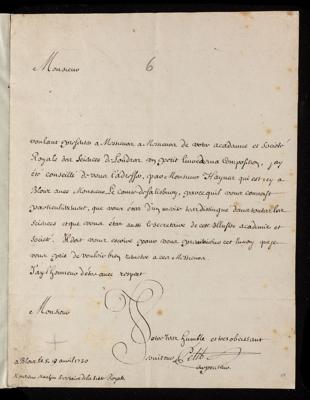 Monsieur
6
voulant presenter a Messieurs a Messieurs de votre academie et societé
Royale des Sciences de Londres un petit livre de ma Composition, j'ay
été conseillé de vous l'adresser, par Monsieur Haynes qui est icy a
Blois avec Monsieur Le Comte de Salisbury, parce qu'il vous connoist
particulierement, que vous etes d'un merite tres distingué dans toutes les
Sciences et que vous etes aussi le Secretaire de cette illustre academie et
societé. Il doit vous ecrire pour vous cet envoy que je
vous prie de vouloir bien remettre a ces Messieurs.
J'ay l'honneur d'etre avec respect
Monsieur
Votre tres humble et tres obeissant
serviteur Petit
a Blois le 19 avril 1730
Monsieur Secretaire de la Societé Royale